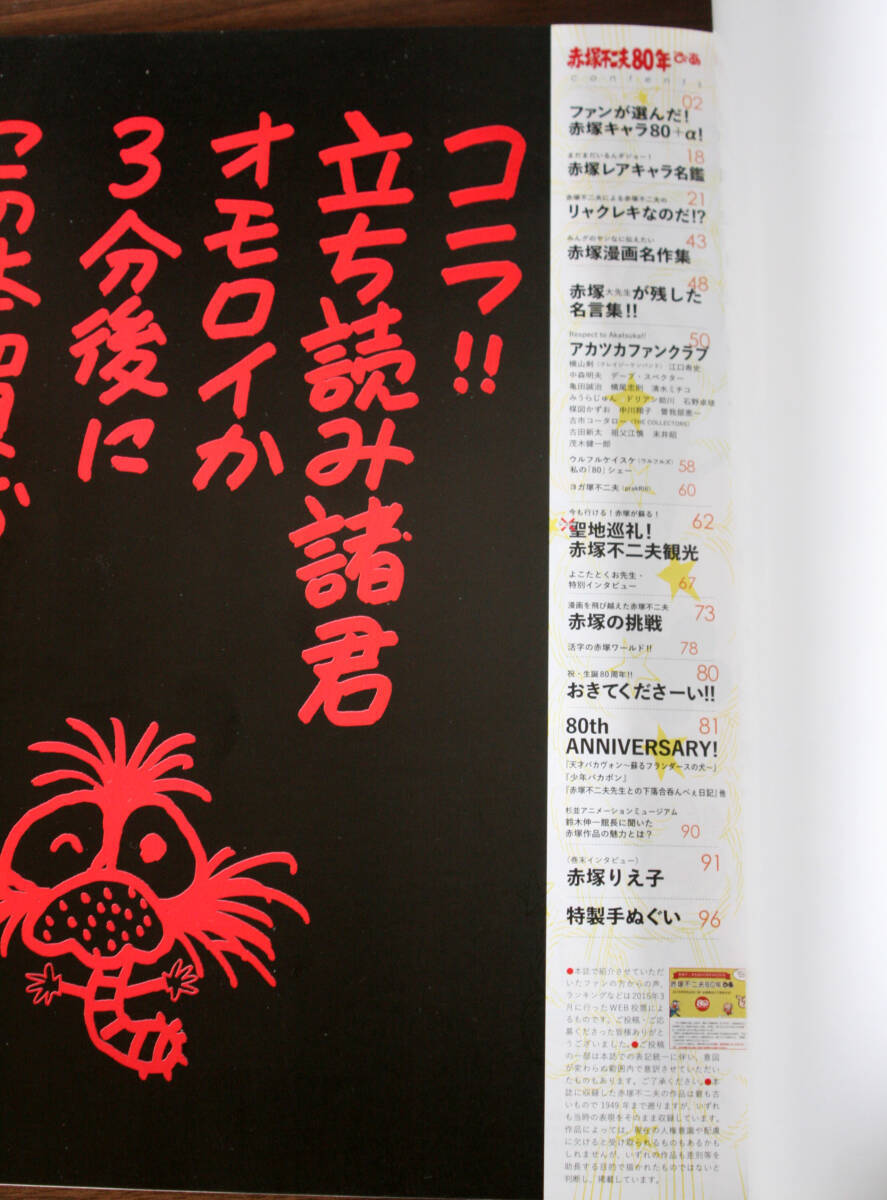 コラ!!
立ち読み諸君
オモロイか
3分後に
赤塚不二夫80年ぴあ
contents
02
ファンが選んだ!
赤塚キャラ80+α!
まだまだいるんダジョー!
18
赤塚レアキャラ名鑑
赤塚不二夫による赤塚不二夫の
21
リャクレキなのだ!?
みんグのヤンなに伝えたい
43
赤塚漫画名作集
48
赤塚大先生が残した
名言集!!
Respect to Akatsuka!!
50
アカツカファンクラブ
横山剣(クレイジーケンバンド) 江口寿史
中森明夫 デーブ・スペクター
亀田誠治 横尾忠則 清水ミチコ
みうらじゅん ドリアン助川 石野卓球
楳図かずお 中川翔子 曽我部恵一
古市コータロー(THE COLLECTORS)
古田新太 祖父江慎 末井昭
茂木健一郎
ウルフルケイスケ(ウルフルズ)
私の「80」シェー 58
ヨガ塚不二夫 60
今も行ける!赤塚が蘇る!
62
聖地巡礼!
赤塚不二夫観光
よこたとくお先生・
特別インタビュー 67
漫画を飛び越えた赤塚不二夫
赤塚の挑戦 73
活字の赤塚ワールド!! 78
祝・生誕80周年!! 80
おきてくださーい!!
80th 81
ANNIVERSARY!
『天才バカヴォン〜蘇るフランダースの犬〜』
『少年バカボン』
『赤塚不二夫先生との下落合呑んべぇ日記』他
杉並アニメーションミュージアム
鈴木伸一館長に聞いた
赤塚作品の魅力とは? 90
(巻末インタビュー) 91
赤塚りえ子
特製手ぬぐい 96
●本誌で紹介させていただ
いたファンの方からの声、
ランキングなどは2015年3
月に行ったWEB投票によ
るものです。ご投稿・ご応
募くださった皆様ありがと
うございました。●ご投稿
の一部は本誌での表記統一に伴い、意図
が変わらぬ範囲内で意訳させていただい
たものもあります。ご了承ください。●本
誌に収録した赤塚不二夫の作品は最も古
いもので1949年まで遡りますが、いずれ
も当時の表現をそのまま収録しています。
作品によっては、現在の人権意識や配慮
に欠けると受け取られるものもあるかも
しれませんが、いずれの作品も差別等を
助長する目的で描かれたものではないと
判断し、掲載しています。
赤塚不二夫80年ぴあ